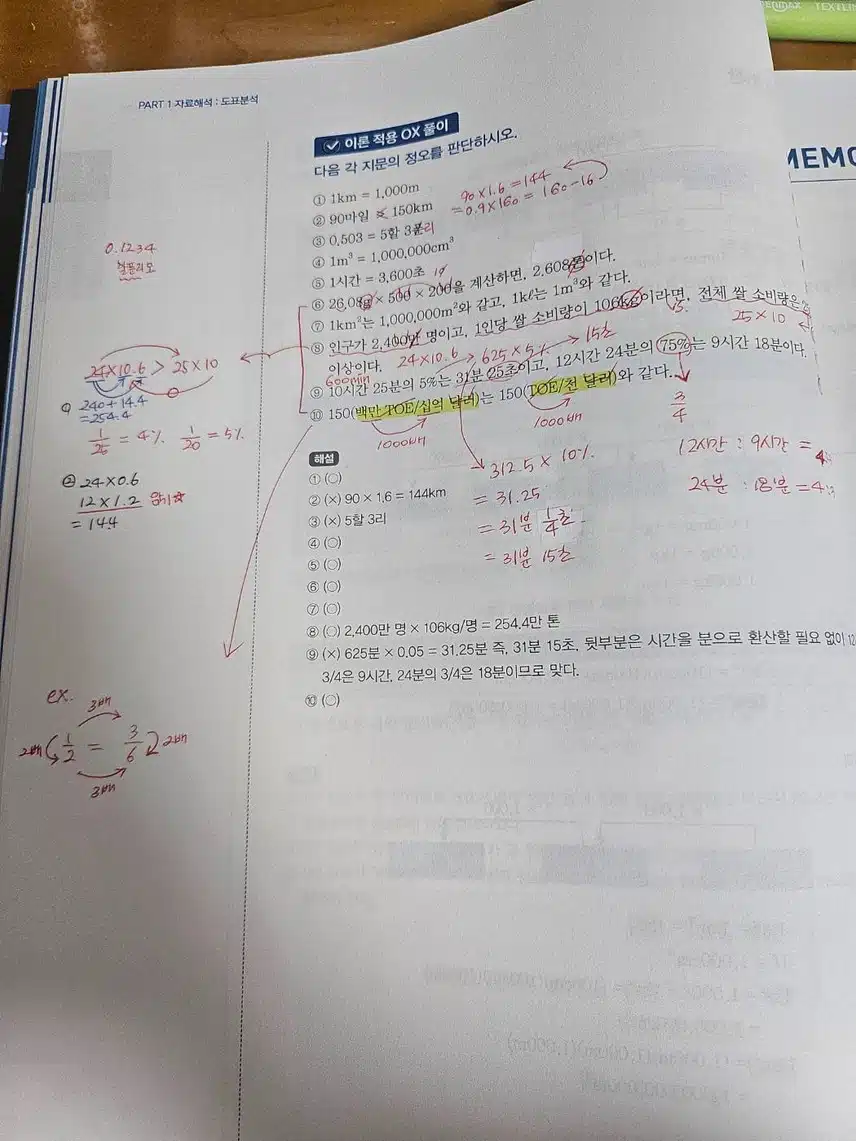 TEXTLINE
PART 1 자료해석 : 도표분석
MEMO
이론 적용 OX 풀이
다음 각 지문의 정오를 판단하시오.
① 1km = 1,000m
90 × 1.6 = 144
② 90마일 ≠ 150km
= 0.9 × 160 = 160 - 16
③ 0.503 = 5할 3푼리
④ 1m³ = 1,000,000cm³
⑤ 1시간 = 3,600초
⑥ 26.08 × 500 × 200을 계산하면, 2.608이다.
⑦ 1km²는 1,000,000m²와 같고, 1kℓ는 1m³와 같다.
⑧ 인구가 2,400만 명이고, 1인당 쌀 소비량이 106kg이라면, 전체 쌀 소비량은
이상이다.
24×10.6
625 × 5%
15초
25 × 10
600min
⑨ 10시간 25분의 5%는 31분 25초이고, 12시간 24분의 75%는 9시간 18분이다.
⑩ 150(백만 TOE/십억 달러)는 150(TOE/천 달러)와 같다.
1000배
1000배
3/4
312.5 × 10%
= 31.25
= 31분 1/4초
= 31분 15초
12시간 : 9시간 =
24분 : 18분 =
0.1234
할푼리모
24×10.6 > 25×10
① 240+14.4
= 254.4
1/25 = 4% 1/20 = 5%
② 24×0.6
12 × 1.2 암기☆
= 14.4
해설
① (○)
② (×) 90 × 1.6 = 144km
③ (×) 5할 3리
④ (○)
⑤ (○)
⑥ (○)
⑦ (○)
⑧ (○) 2,400만 명 × 106kg/명 = 254.4만 톤
⑨ (×) 625분 × 0.05 = 31.25분 즉, 31분 15초, 뒷부분은 시간을 분으로 환산할 필요 없이 12
3/4은 9시간, 24분의 3/4은 18분이므로 맞다.
⑩ (○)
ex.
3배
2배 1/2 = 3/6 2배
3배